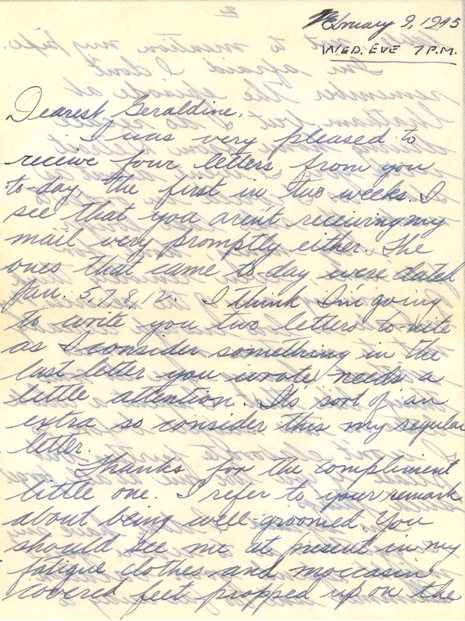 February 9, 1945
WED. EVE 7 P.M.
Dearest Geraldine,
I was very pleased to
receive four letters from you
to-day the first in two weeks. I
see that you aren't receiving my
mail very promptly either. The
ones that came to-day were dated
Jan. 5, 7, 8, 12. I think I'm going
to write you two letters to-nite
as I consider something in the
last letter you wrote needs a
little attention. Its sort of an
extra so consider this my regular
letter.
Thanks for the compliment
little one. I refer to your remark
about being well groomed. You
should see me at present in my
fatigue clothes and moccasin
covered feet propped up on the